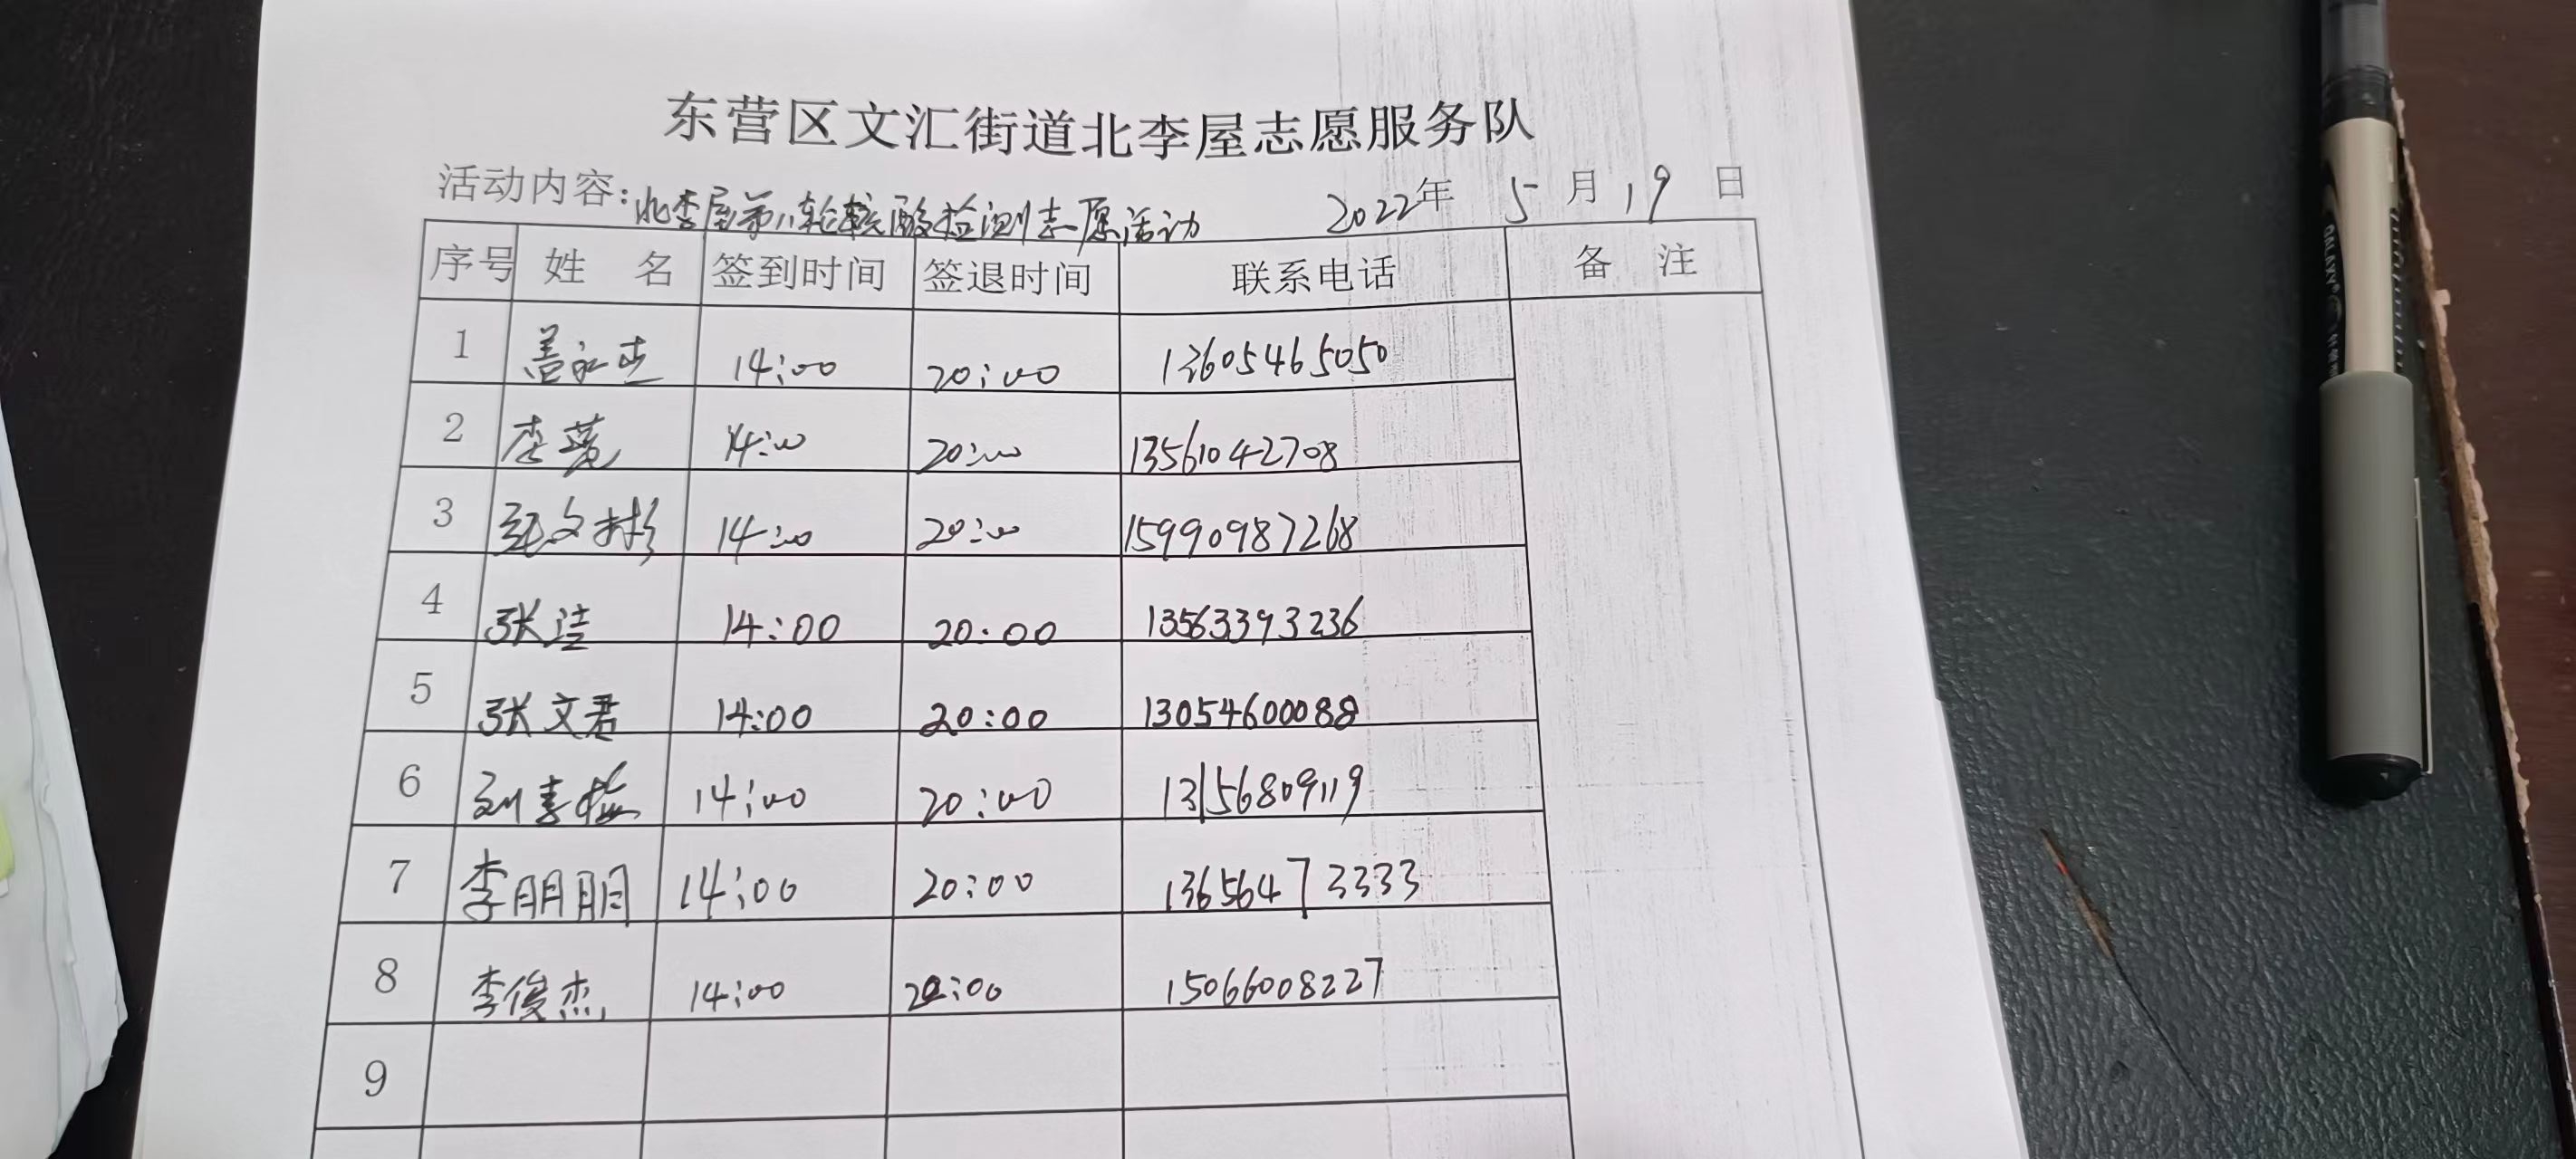 东营区文汇街道北李屋志愿服务队
活动内容:北李屋第八轮核酸检测志愿活动 2022年 5 月 19 日
序号 姓 名 签到时间 签退时间 联系电话 备 注
1 14:00 20:00 13605465050
2 李 14:00 20:00 13561042708
3 文彬 14:00 20:00 15990987268
4 张洁 14:00 20:00 13563393236
5 张文君 14:00 20:00 13054600088
6 刘 14:00 20:00 13156809119
7 李朋朋 14:00 20:00 13656473333
8 李俊杰 14:00 20:00 15066008227
9